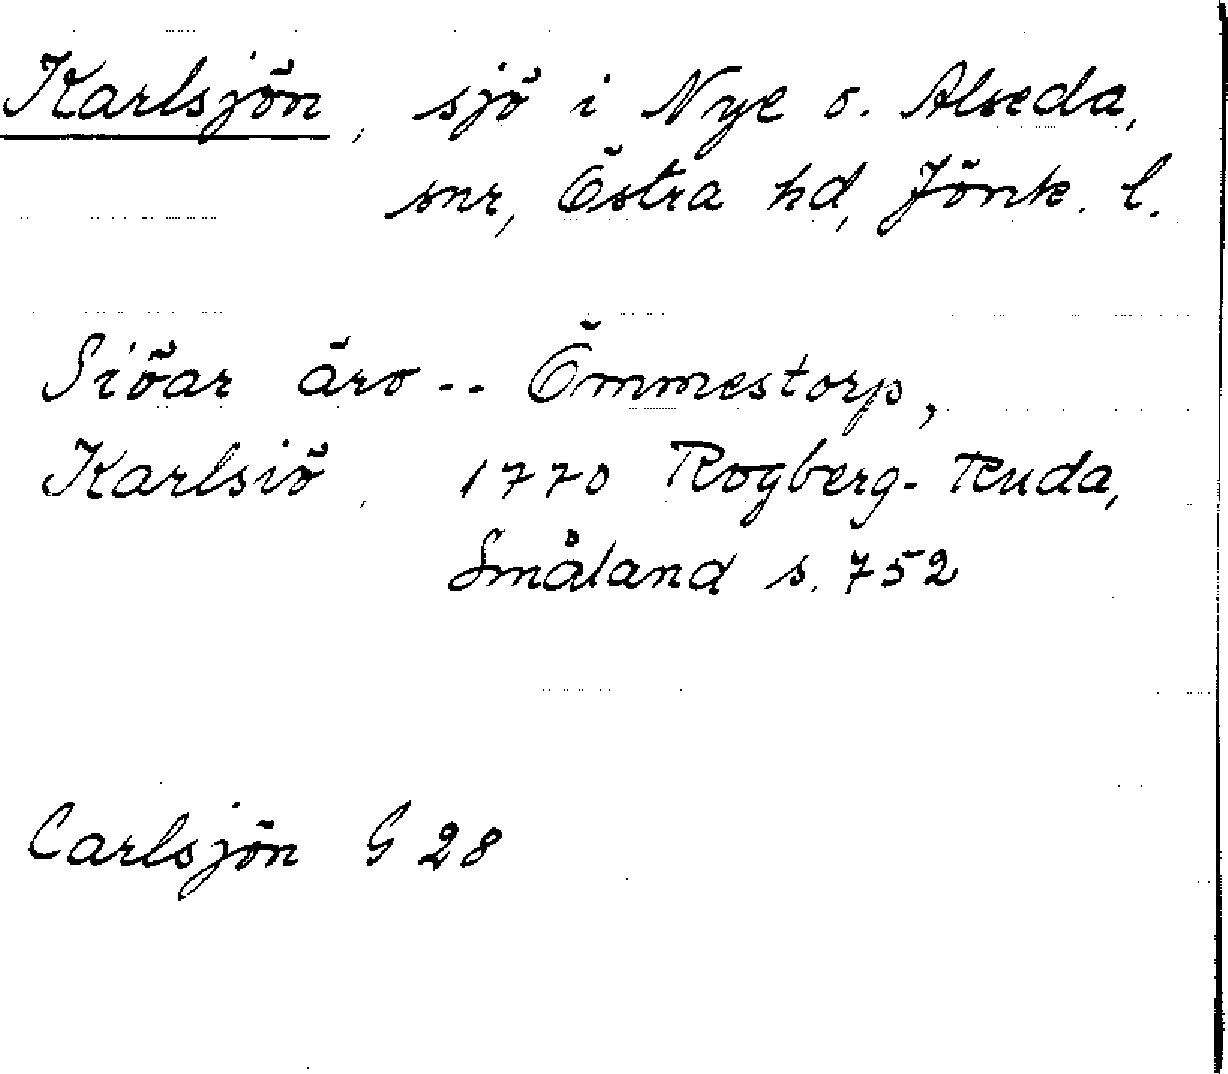 Karlsjön, sjö i Nye o. Alseda,
snr, Östra hd, Jönk. l.
Siöar äro -- Ömmestorp,
Karlsiö, 1770 Rogberg-Ruda,
Småland s. 752
Carlsjön G 28